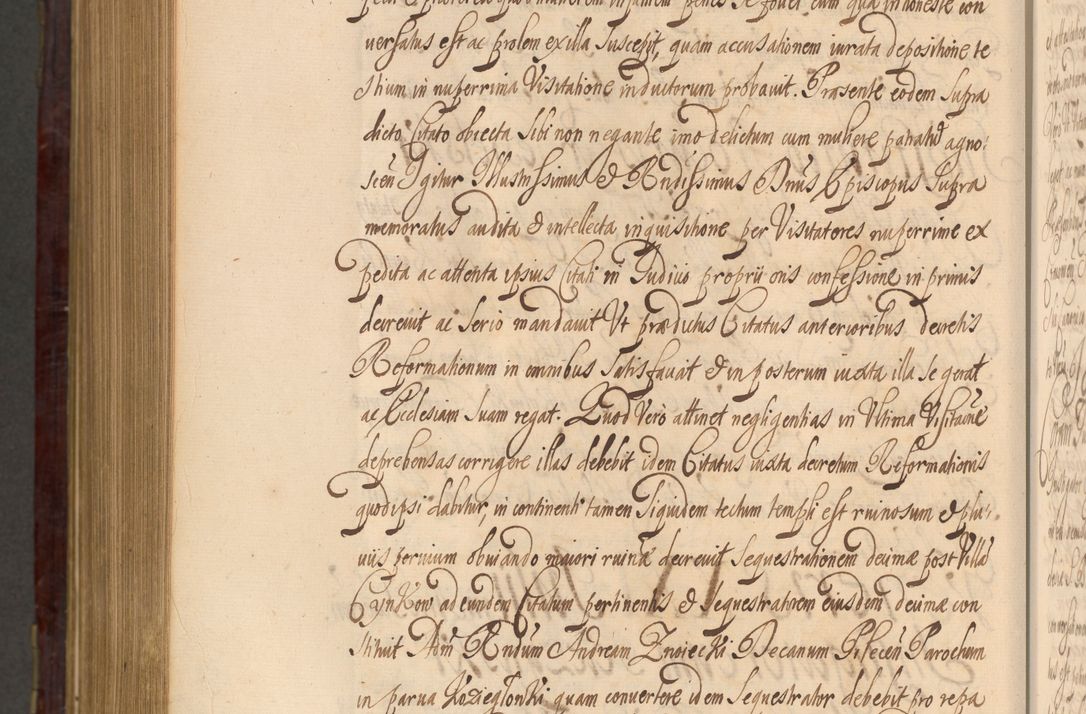 versatus est ac prolem ex illa suscepit, quam accusationem iurata depositione te
stium in nuperrima Visitatione inductorum probavit. Præsente eodem supra
dicto Citato obiecta sibi non negante imo delictum cum muliere patratũ agno:
scen̄ Igitur Illustrissimus & Rndissimus Dnus Episcopus supra
memoratus audita & intellecta inquisitione per Visitatores nuperrime ex
pedita ac attenta ipsius Citati in Iudicio proprii oris confessione in primis
decrevit ac serio mandavit Vt prædictus Citatus anterioribus decretis
Reformationum in omnibus satisfaciat & in posterum iuxta illa se gerat
ac Ecclesiam suam regat. Quod Vero attinet negligentias in Vltima Visitacne
deprehensas corrigere illas debebit idem Citatus iuxta decretum Reformationis
quod ipsi dabitur, in continenti tamen siquidem tectum templi est ruinosum & plu:
viis pervium obviando maiori ruinæ decrevit sequestrationem decimæ post Villã
Cynkow ad eundem Citatum pertinentis & sequestratorem eiusdem decimæ con
stituit Adm̄ Rndum Andream Znoiecki Decanum Pilecen̄ Parochum
in parva Kozieglonki quam convertere idem sequestrator debebit pro repa